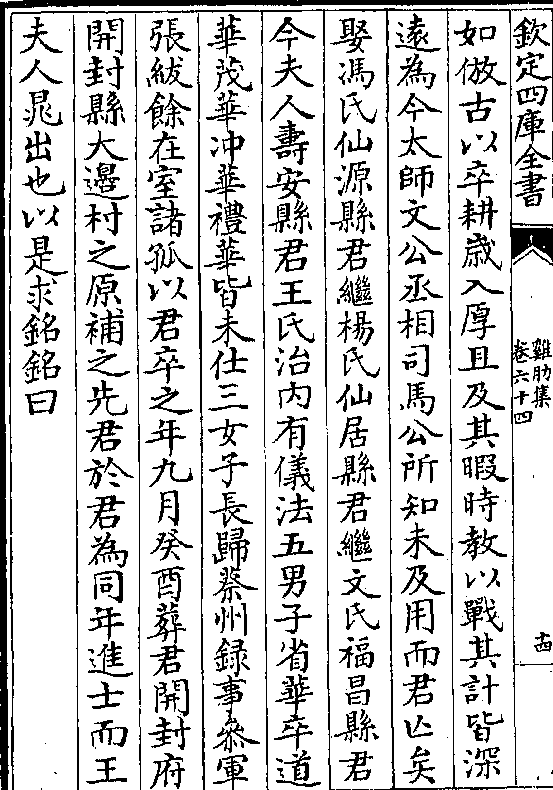 欽定四庫全書
雞肋集
卷六十四
十四
如倣古以卒耕歲入厚且及其暇時教以戰其計皆深
遠為今太師文公丞相司馬公所知未及用而君亡矣
娶馮氏仙源縣君繼楊氏仙居縣君繼文氏福昌縣君
今夫人壽安縣君王氏治内有儀法五男子省華卒道
華茂華冲華禮華皆未仕三女子長歸蔡州録事叅軍
張紱餘在室諸孤以君卒之年九月癸酉葬君開封府
開封縣大邉村之原補之先君於君為同年進士而王
夫人晁出也以是求銘銘曰